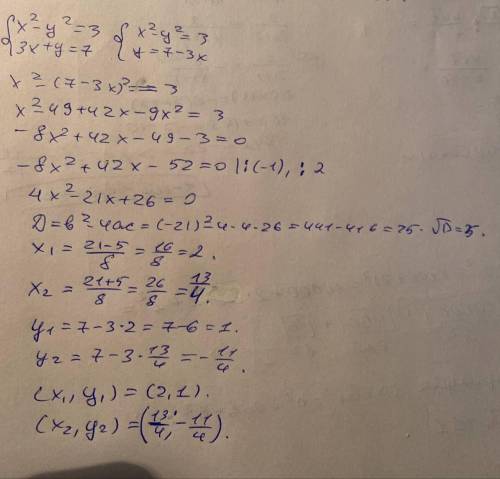 {x²-y²=3 {x²-y²=3
{3x+y=7 {y=7-3x
x²-(7-3x)²=3
x²-49+42x-9x²=3
-8x²+42x-49-3=0
-8x²+42x-52=0 |:(-1), :2
4x²-21x+26=0
D=b²-4ac=(-21)²-4·4·26=441-416=25. √D=5.
x₁=(21-5)/8=16/8=2.
x₂=(21+5)/8=26/8=13/4.
y₁=7-3·2=7-6=1.
y₂=7-3·13/4=-11/4.
(x₁, y₁)=(2,1).
(x₂, y₂)=(13/4, -11/4).